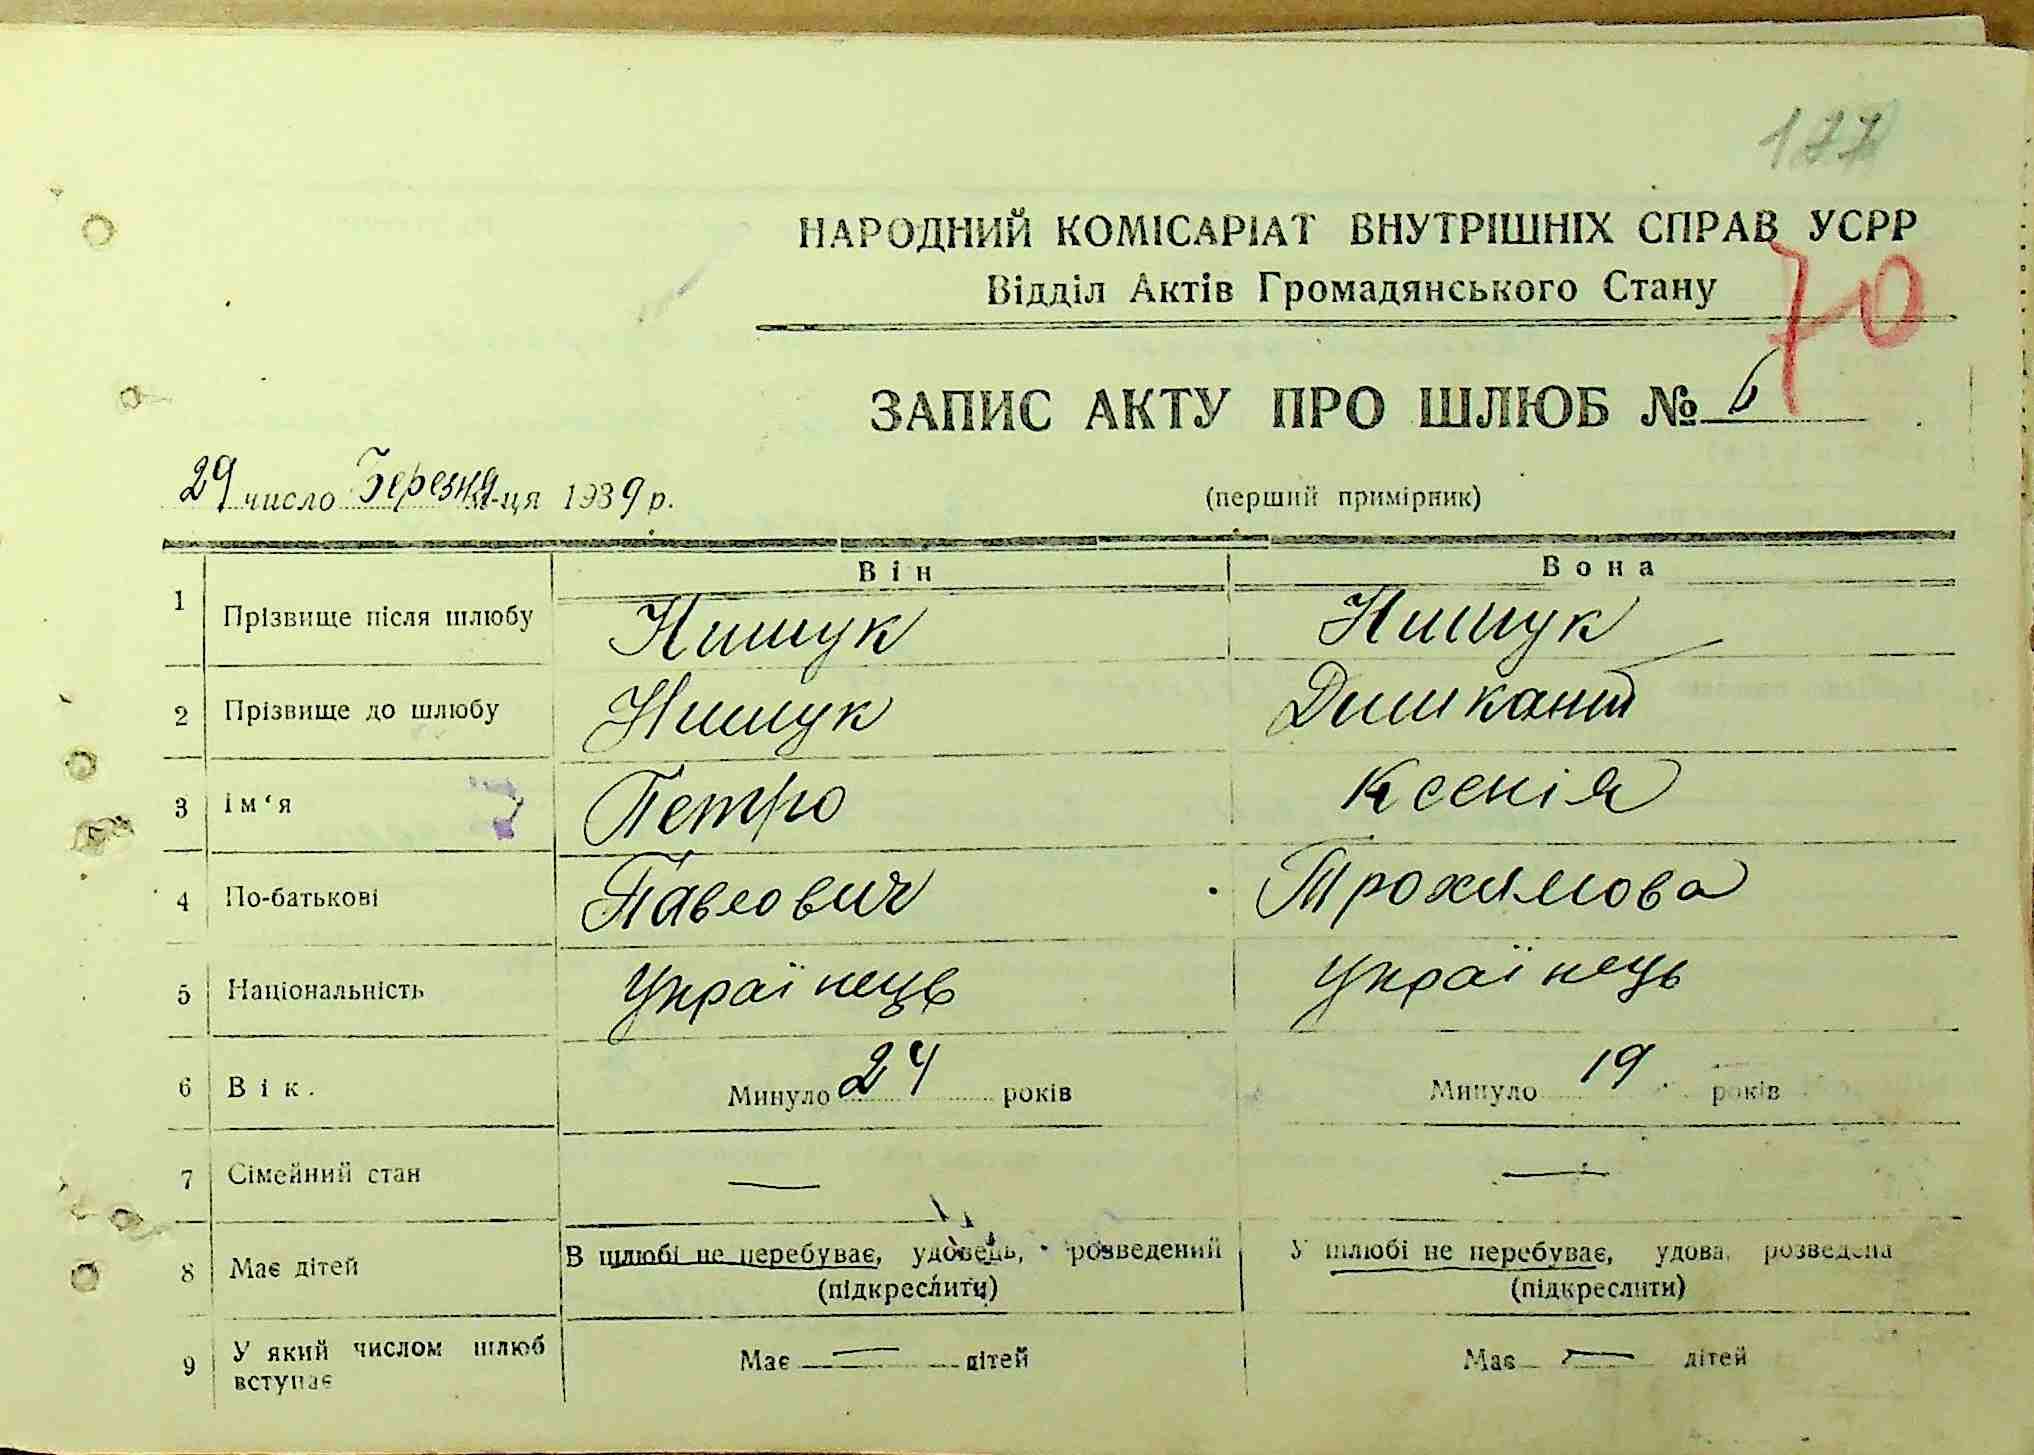 177
НАРОДНИЙ КОМІСАРІАТ ВНУТРІШНІХ СПРАВ УСРР
70
Відділ Актів Громадянського Стану
ЗАПИС АКТУ ПРО ШЛЮБ № 6
29 число Березня м-ця 1939 р.
(перший примірник)
Він Вона
1 Прізвище після шлюбу Нищук Нищук
2 Прізвище до шлюбу Нищук Дишкант
3 Ім'я Петро Ксенія
4 По-батькові Павлович Трохимова
5 Національність Українець Українець
6 Вік. Минуло 24 років Минуло 19 років
7 Сімейний стан — —
8 Має дітей В шлюбі не перебуває, удовець, розведений У шлюбі не перебуває, удова, розведена
(підкреслити) (підкреслити)
9 У який числом шлюб вступає Має — дітей Має — дітей